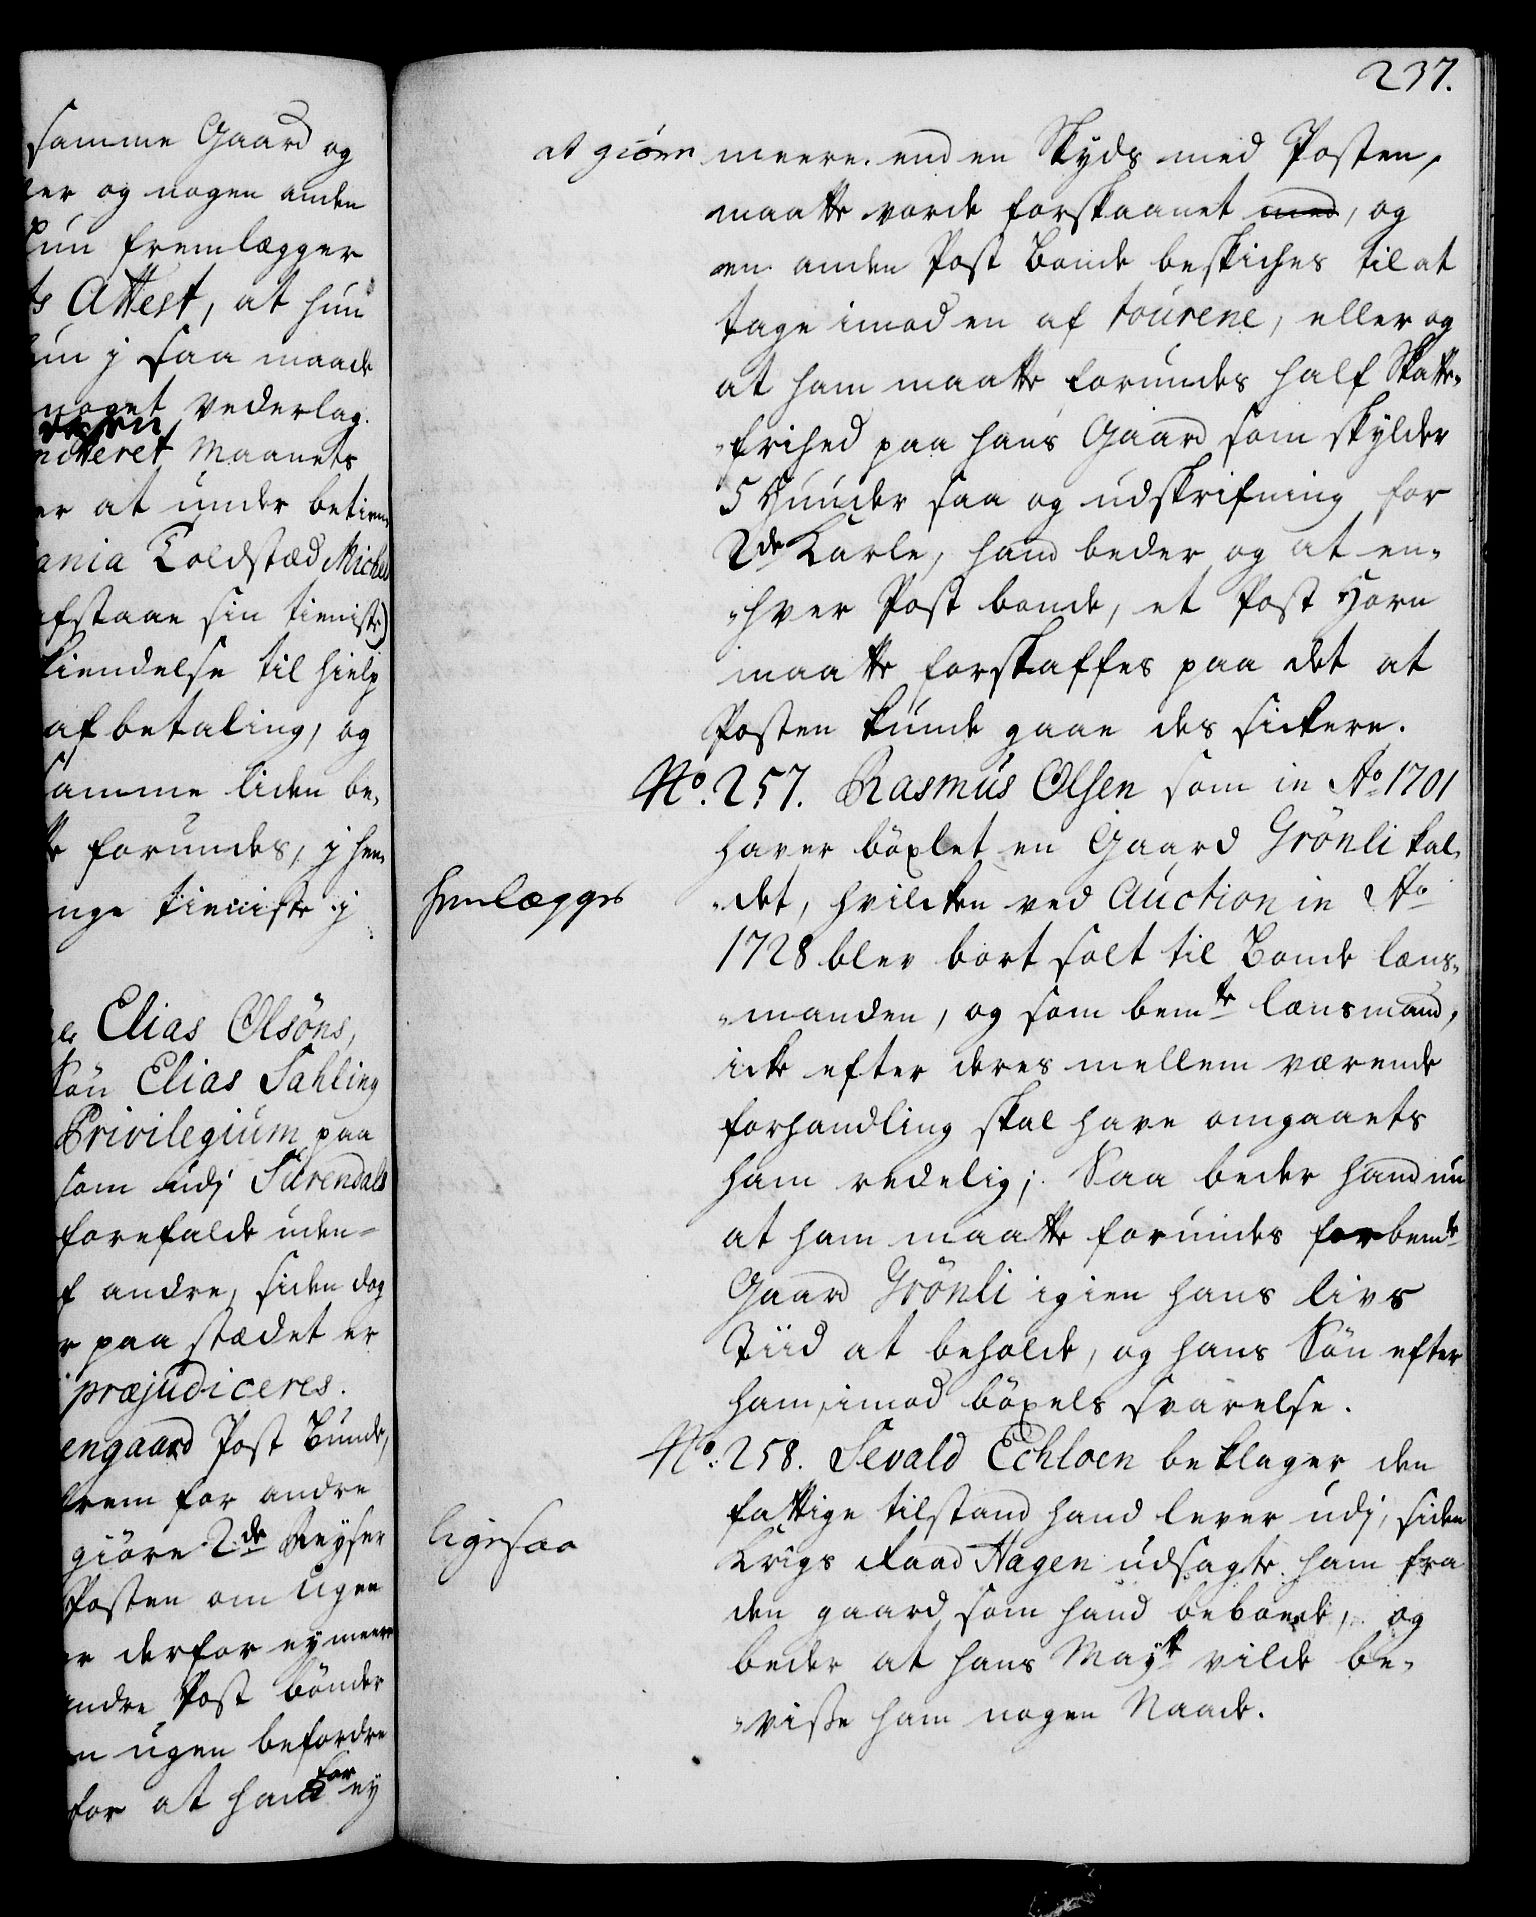 samme Gaard og
er og nogen anden
hun fremlægger
ts Attest, at hun
hun j saa maade
noget vederlag.
Maanets
er at under betien
ania Toldstæd Michel
afstaae sin tieniste
kiendelse til hielp
af betaling, og
samme liden be„
forundes, j hen„
nge tieniste j
Elias Olsöns,
Sön Elias Sahling
Privilegium paa
som udj Surendals
forefalde uden=
f andre, siden dog
r paa stædet er
præjudiceres.
engaard Post Bunde,
frem for andre
giöre 2de Reyser
Posten om Ugen
er derfor ey meere
andre Post bönder
en ugen befordre
for at hand for ey
237.
at giöre meere end en Skyds med Posten,
maatte vorde forskaanet med, og
en anden Post bonde beskickes til at
tage imod en af tourene, eller og
at ham maatte forundes half Skatte„
„frihed paa hans Gaard som skylder
5 Hunder saa og udskrifning for
2de Karle, hand beder og at en„
„hver Post bonde, et Post Horn
maatte forskaffes paa det at
Posten kunde gaae des sickere.
No. 257. Rasmus Olsen som in Ao 1701
haver böxlet en Gaard Grönli kal„
henlægges
„det, hvilcken ved Auction in Ao
1728 blev bort solt til Bonde læns„
„manden, og som bemte lænsmand,
icke efter deres mellem værende
forhandling skal have omgaaets
ham redelig; Saa beder hand nu
at ham maatte forundes forbemte
Gaard Grönli igien hans livs
Tiid at beholde, og hans Sön efter
ham, imod böxels svarelse.
No. 258. Sevald Echloen beklager den
fattige tilstand hand lever udj, siden
ligesaa
Krigs Raad Hagen udsagte ham fra
den gaard som hand beboede, og
beder at hans Mayt vilde be„
„visse ham nogen Naade.